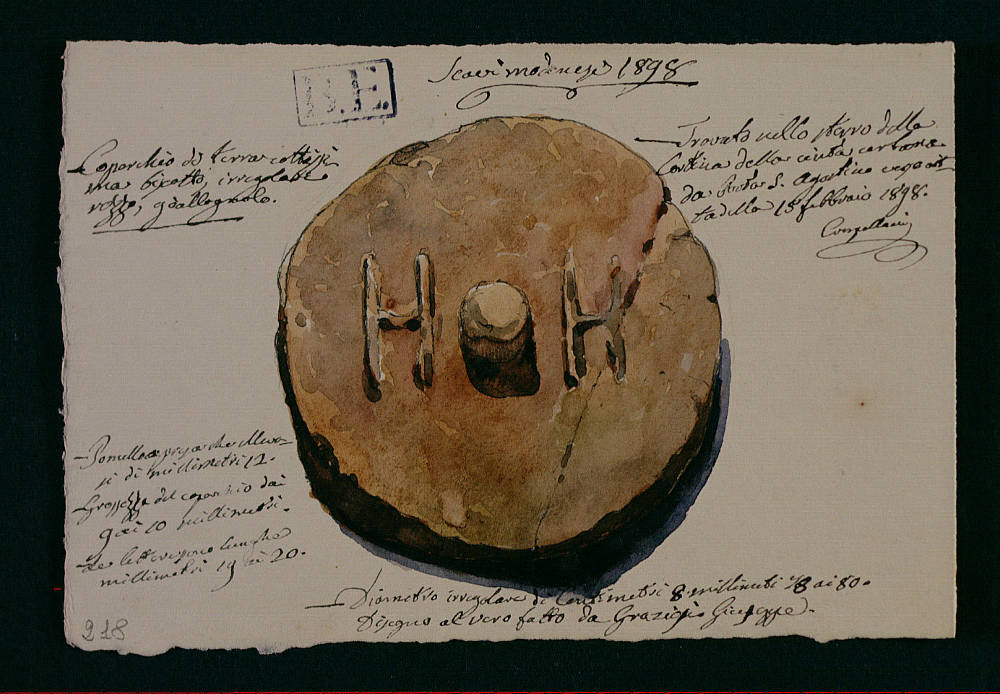 Scavi modenesi 1898
B.E.
Coperchio di terra cottissi
ma bicotto, irregolare
rozzo, giallognolo.
Trovato nello sterro della
Cortina della cinta
da Porta S. Agostino
ta della 15 febbraio 1898.
H H
Pomello
si di millimetri 12.
Grossezza del coperchio dai
9 ai 10 millimetri.
le lettere sono lunghe
millimetri 19 ai 20.
Diametro irregolare di Centimetri 8 millimetri 78 ai 80.
Disegno al vero fatto da Graziosi Giuseppe.
218